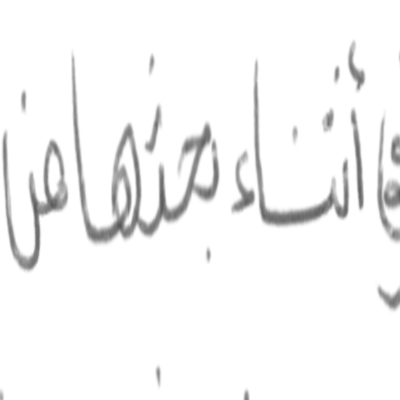 أثناء بحثها عن